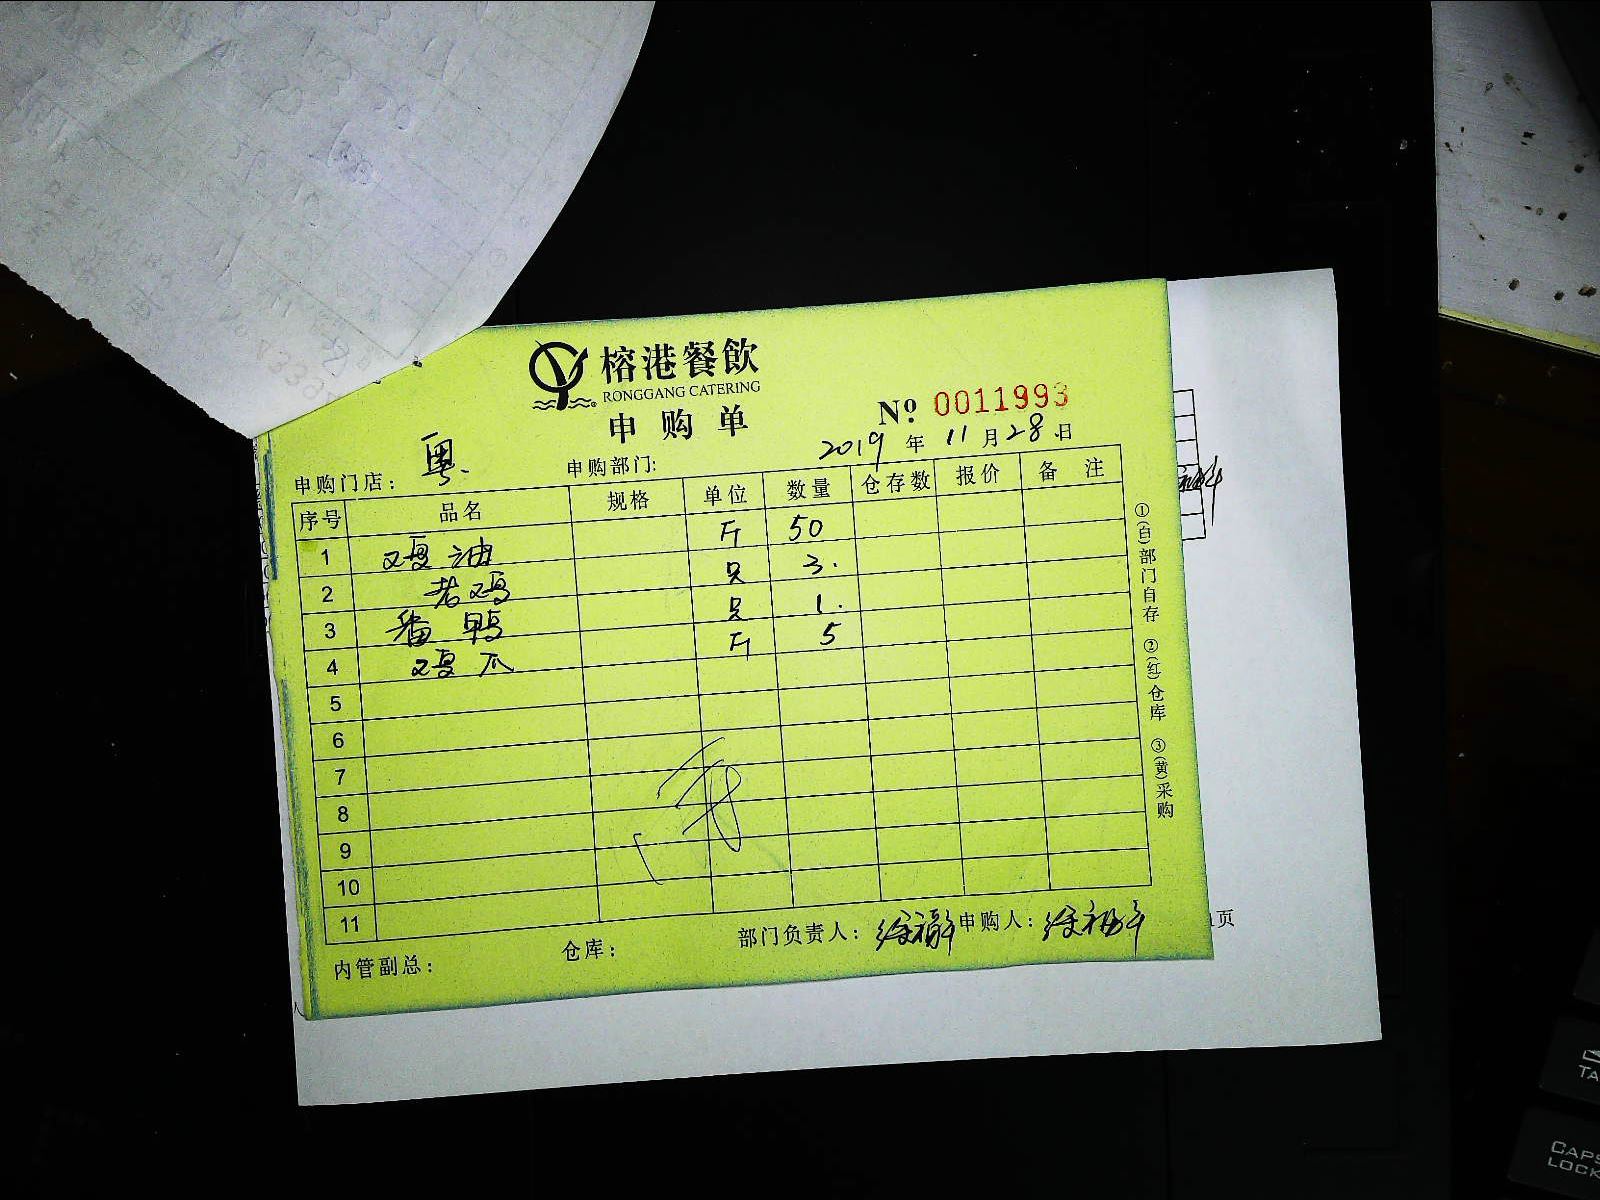 榕港餐飲
RONGGANG CATERING
申购单
№ 0011993
2019年11月28日
申购门店：粤. 申购部门:
序号 品名 规格 单位 数量 仓存数 报价 备注
1 鸡油 斤 50
2 老鸡 只 3.
3 番鸭 只 1.
4 鸡爪 斤 5
5
6
7
8
9
10
11
①(白)部门自存 ②(红)仓库 ③(黄)采购
内管副总： 仓库： 部门负责人： 申购人：
页
TA
CAPS
LOCK